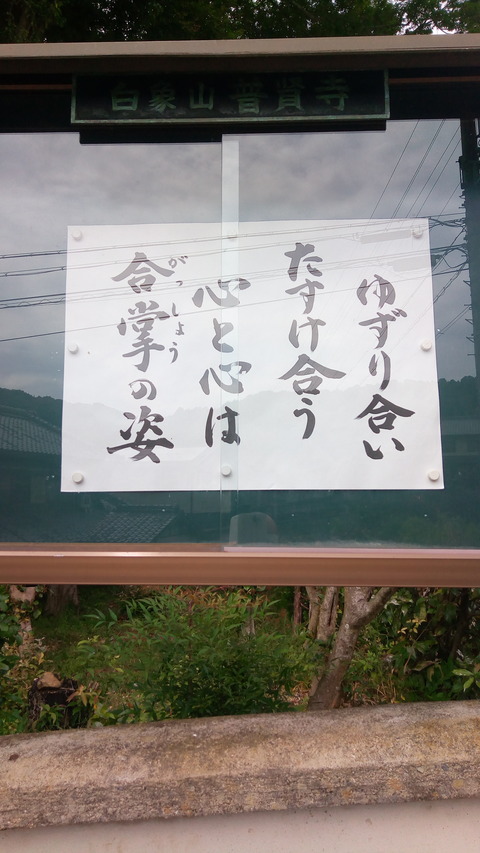 白象山 普賢寺
ゆずり合い
たすけ合う
心と心は
合掌の姿
がっしょう